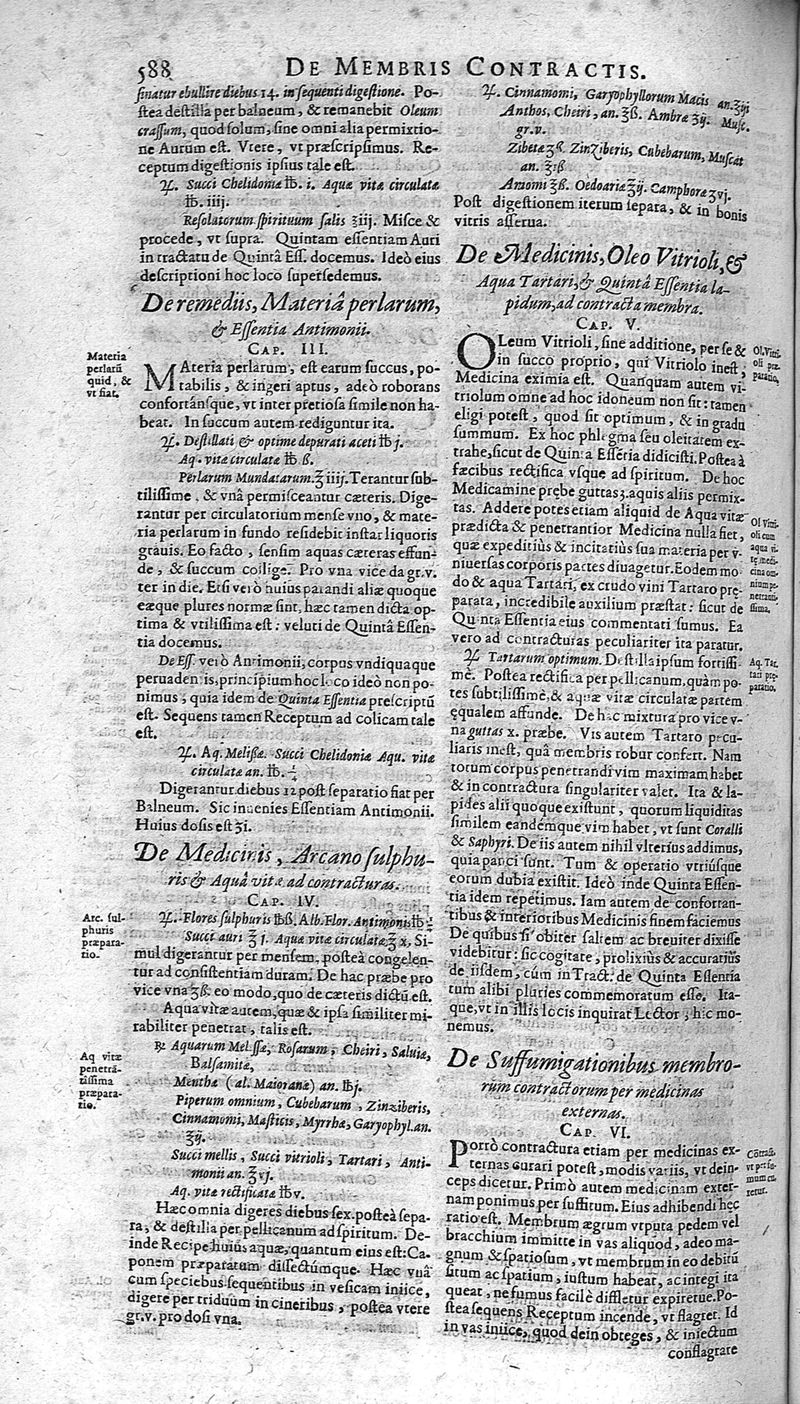 588 DE MEMBRIS CONTRACTIS.
sinatur ebullire diebus 14. in sequenti digestione. Po-
stea destilla per balneum, & remanebit Oleum
crassum, quod solum, sine omni alia permixtio-
ne Aurum est. Vtere, vt præscripsimus. Re-
ceptum digestionis ipsius tale est.
♃. Succi Chelidoniæ ℔. i. Aquæ vitæ circulatæ
℔. iiij.
Resolatorum spirituum salis ʒiij. Misce &
procede, vt supra. Quintam essentiam Auri
in tractatu de Quintâ Ess. docemus. Ideò eius
descriptioni hoc loco supersedemus.
De remediis, Materiâ perlarum,
& Essentia Antimonii.
CAP. III.
Materia
perlarũ
quid, &
vt fiat.
MAteria perlarum, est earum succus, po-
tabilis, & ingeri aptus, adeò roborans
confortánsque, vt inter pretiosa simile non ha-
beat. In succum autem redigundur ita.
♃. Destillati & optime depurati aceti ℔ j.
Aq. vitæ circulatæ ℔ ß.
Perlarum Mundatarum.℥ iiij. Terantur sub-
tilissime, & vnâ permisceantur cæteris. Dige-
rantur per circulatorium mense vno, & mate-
ria perlarum in fundo residebit instar liquoris
grauis. Eo facto, sensim aquas cæteras effun-
de, & succum collige. Pro vna vice da gr. v.
ter in die. Etsi verò huius parandi aliæ quoque
eæque plures normæ sint, hæc tamen dicta op-
tima & vtilissima est: veluti de Quintâ Essen-
tia docemus.
De Ess. verò Antimonii, corpus vndiquaque
peruadentis, principium hoc loco ideò non po-
nimus, quia idem de Quinta Essentia prescriptũ
est. Sequens tamen Receptum ad colicam tale
est.
♃. Aq. Melissæ. Succi Chelidoniæ Aqu. vitæ
circulatæ an. ℔.
Digerantur diebus 12 post separatio fiat per
Balneum. Sic inuenies Essentiam Antimonii.
Huius dosis est ʒi.
De Medicinis, Arcano sulphu-
ris & Aquâ vitæ ad contracturas.
CAP. IV.
Arc. sul-
phuris
præpara-
tio.
♃. Flores sulphuris ℔ß. Alb. Flor. Antimonii ℔
Succi auri ℥ j. Aquæ vitæ circulatæ ℥ x, Si-
mul digerantur per mensem, posteà congelen-
tur ad consistentiam duram. De hac præbe pro
vice vna ʒß. eo modo, quo de cæteris dictũ est.
Aqua vitæ autem, quæ & ipsa similiter mi-
rabiliter penetrat, talis est.
Aq vitæ
penetrã-
tissima
præpara-
tio.
℞ Aquarum Melissæ, Rosarum, Cheiri, Saluiæ,
Balsamitæ,
Menthæ (al. Maioranæ) an. ℔j.
Piperum omnium, Cubebarum, Zinziberis,
Cinnamomi, Masticis, Myrrhæ, Garyophyl. an.
℥ij.
Succi mellis, Succi vitrioli, Tartari, Anti-
monii an. ℥vj.
Aq. vitæ rectificatæ ℔v.
Hæc omnia digeres diebus sex. posteà sepa-
ra, & destilla per pellicanum ad spiritum. De-
inde Recipe huius aquæ, quantum eius est: Ca-
ponem præparatum dissectúmque. Hæc vnâ
cum speciebus sequentibus in vesicam iniice,
digere per triduum in cineribus, postea vtere
gr. v. pro dosi vna.
♃. Cinnamomi, Garyophyllorum Macis an. ʒiij
Anthos, Cheiri, an. ℥ß. Ambræ ʒij. Musc.
gr. v.
Zibetæ ʒß. Zinziberis, Cubebarum, Muscat
an. ʒiß
Amomi ʒß. Oedoariæ ʒij. Camphoræ ʒvj.
Post digestionem iterum separa, & in bonis
vitris asserua.
De Medicinis, Oleo Vitrioli, &
Aqua Tartari, & Quintâ Essentia la-
pidum, ad contracta membra.
CAP. V.
OLeum Vitrioli, sine additione, per se &
in succo proprio, qui Vitriolo inest,
Medicina eximia est. Quanquam autem vi-
triolum omne ad hoc idoneum non sit: tamen
eligi potest, quod sit optimum, & in gradu
summum. Ex hoc phlegma seu oleitatem ex-
trahe, sicut de Quinta Essẽtia didicisti. Postea à
fæcibus rectifica vsque ad spiritum. De hoc
Medicamine prębe guttas 3. aquis aliis permix-
tas. Addere potes etiam aliquid de Aqua vitæ
prædicta & penetrantior Medicina nulla fiet,
quæ expeditiùs & incitatiùs sua materia per v-
niuersas corporis partes diuagetur. Eodem mo-
do & aqua Tartari, ex crudo vini Tartaro prę-
parata, incredibile auxilium præstat: sicut de
Quinta Essentia eius commentati sumus. Ea
vero ad contracturas peculiariter ita paratur.
Ol. Vitri-
oli præ-
paratio.
Ol Vitri-
oli cum
aqua vi-
tę medi-
cina om-
nium pe-
netranti-
ssima.
♃ Tartarum optimum. Destilla ipsum fortissi-
mè. Postea rectifica per pellicanum, quàm po-
tes subtilissimè, & aquæ vitæ circulatæ partem
ęqualem affunde. De hac mixtura pro vice v-
na guttas x. præbe. Vis autem Tartaro pecu-
liaris inest, quâ membris robur confert. Nam
totum corpus penetrandi vim maximam habet
& in contractura singulariter valet. Ita & la-
pides alii quoque existunt, quorum liquiditas
similem eandémque vim habet, vt sunt Coralli
& Saphyri. De iis autem nihil vlterius addimus,
quia pauci sunt. Tum & operatio vtriúsque
eorum dubia existit. Ideò inde Quinta Essen-
tia idem repetimus. Iam autem de confortan-
tibus & interioribus Medicinis finem faciemus
De quibus si obiter saltem ac breuiter dixisse
videbitur: sic cogitate, prolixiùs & accuratiùs
de iisdem, cùm in Tract. de Quinta Essentia
tum alibi pluries commemoratum esse. Ita-
que, vt in illis locis inquirat Lector, hic mo-
nemus.
Aq. Tar-
tari prę-
paratio.
De Suffumigationibus membro-
rum contractorum per medicinas
externas.
CAP. VI.
POrrò contractura etiam per medicinas ex-
ternas curari potest, modis variis, vt dein-
ceps dicetur. Primò autem medicinam exter-
nam ponimus per suffitum. Eius adhibendi hęc
ratio est. Membrum ægrum vtputa pedem vel
bracchium immitte in vas aliquod, adeo ma-
gnum & spatiosum, vt membrum in eo debitũ
situm ac spatium, iustum habeat, ac integi ita
queat, ne fumus facilè diffletur expiretue. Po-
stea sequens Receptum incende, vt flagret. Id
in vas iniice, quod dein obteges, & iniectum
conflagrare